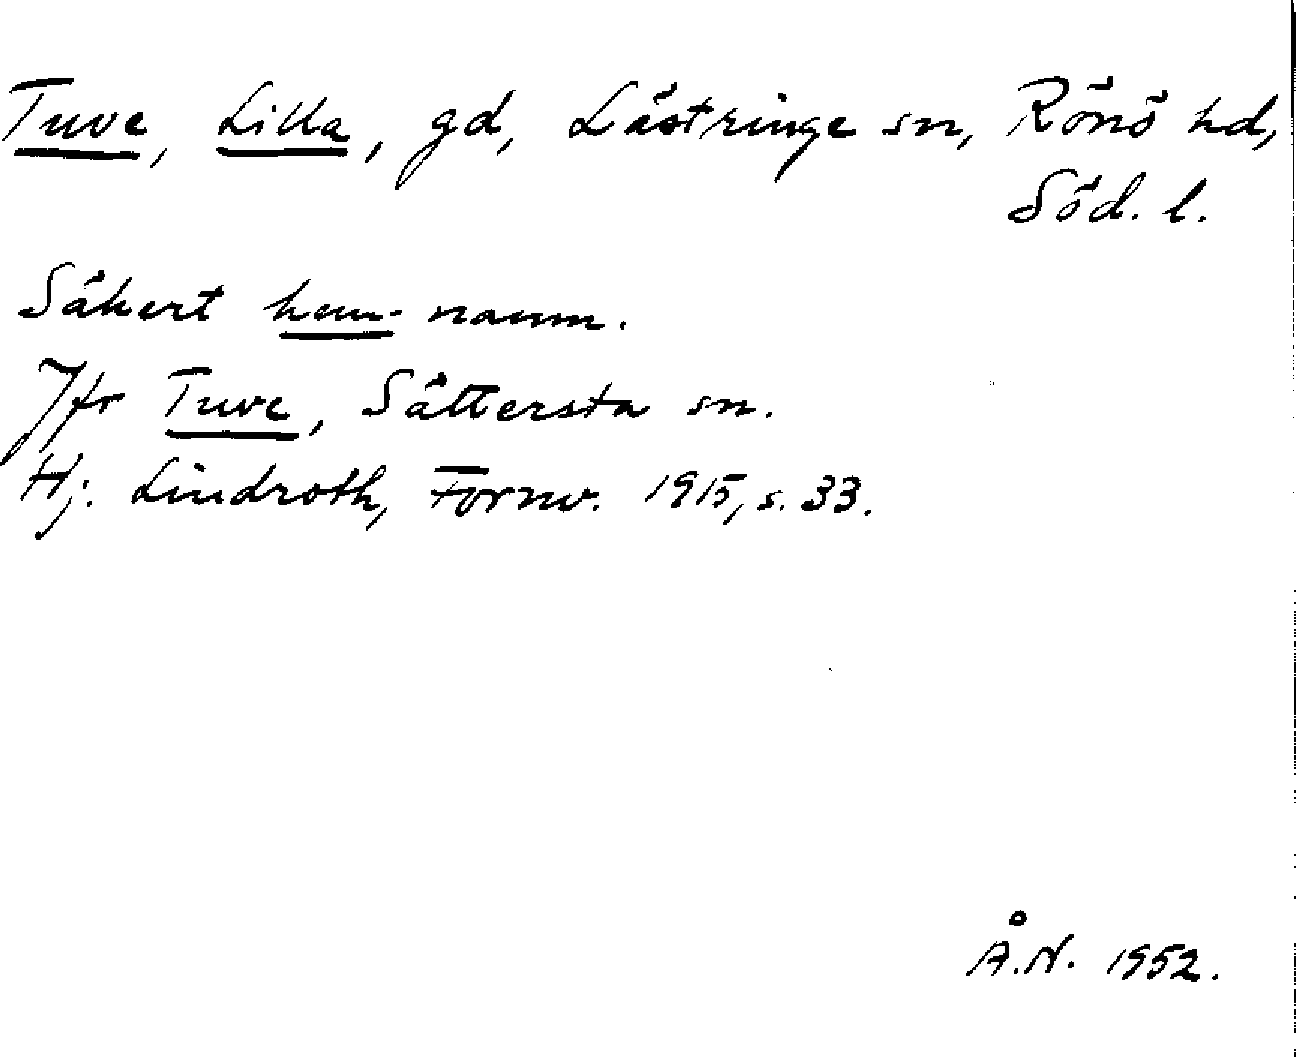 Tuve, Lilla, gd, Lästringe sn, Rönö hd,
Söd. l.
Säkert hem- namn.
Jfr Tuve, Sättersta sn.
Hj. Lindroth, Fornv. 1915, s. 33.
Å.N. 1952.